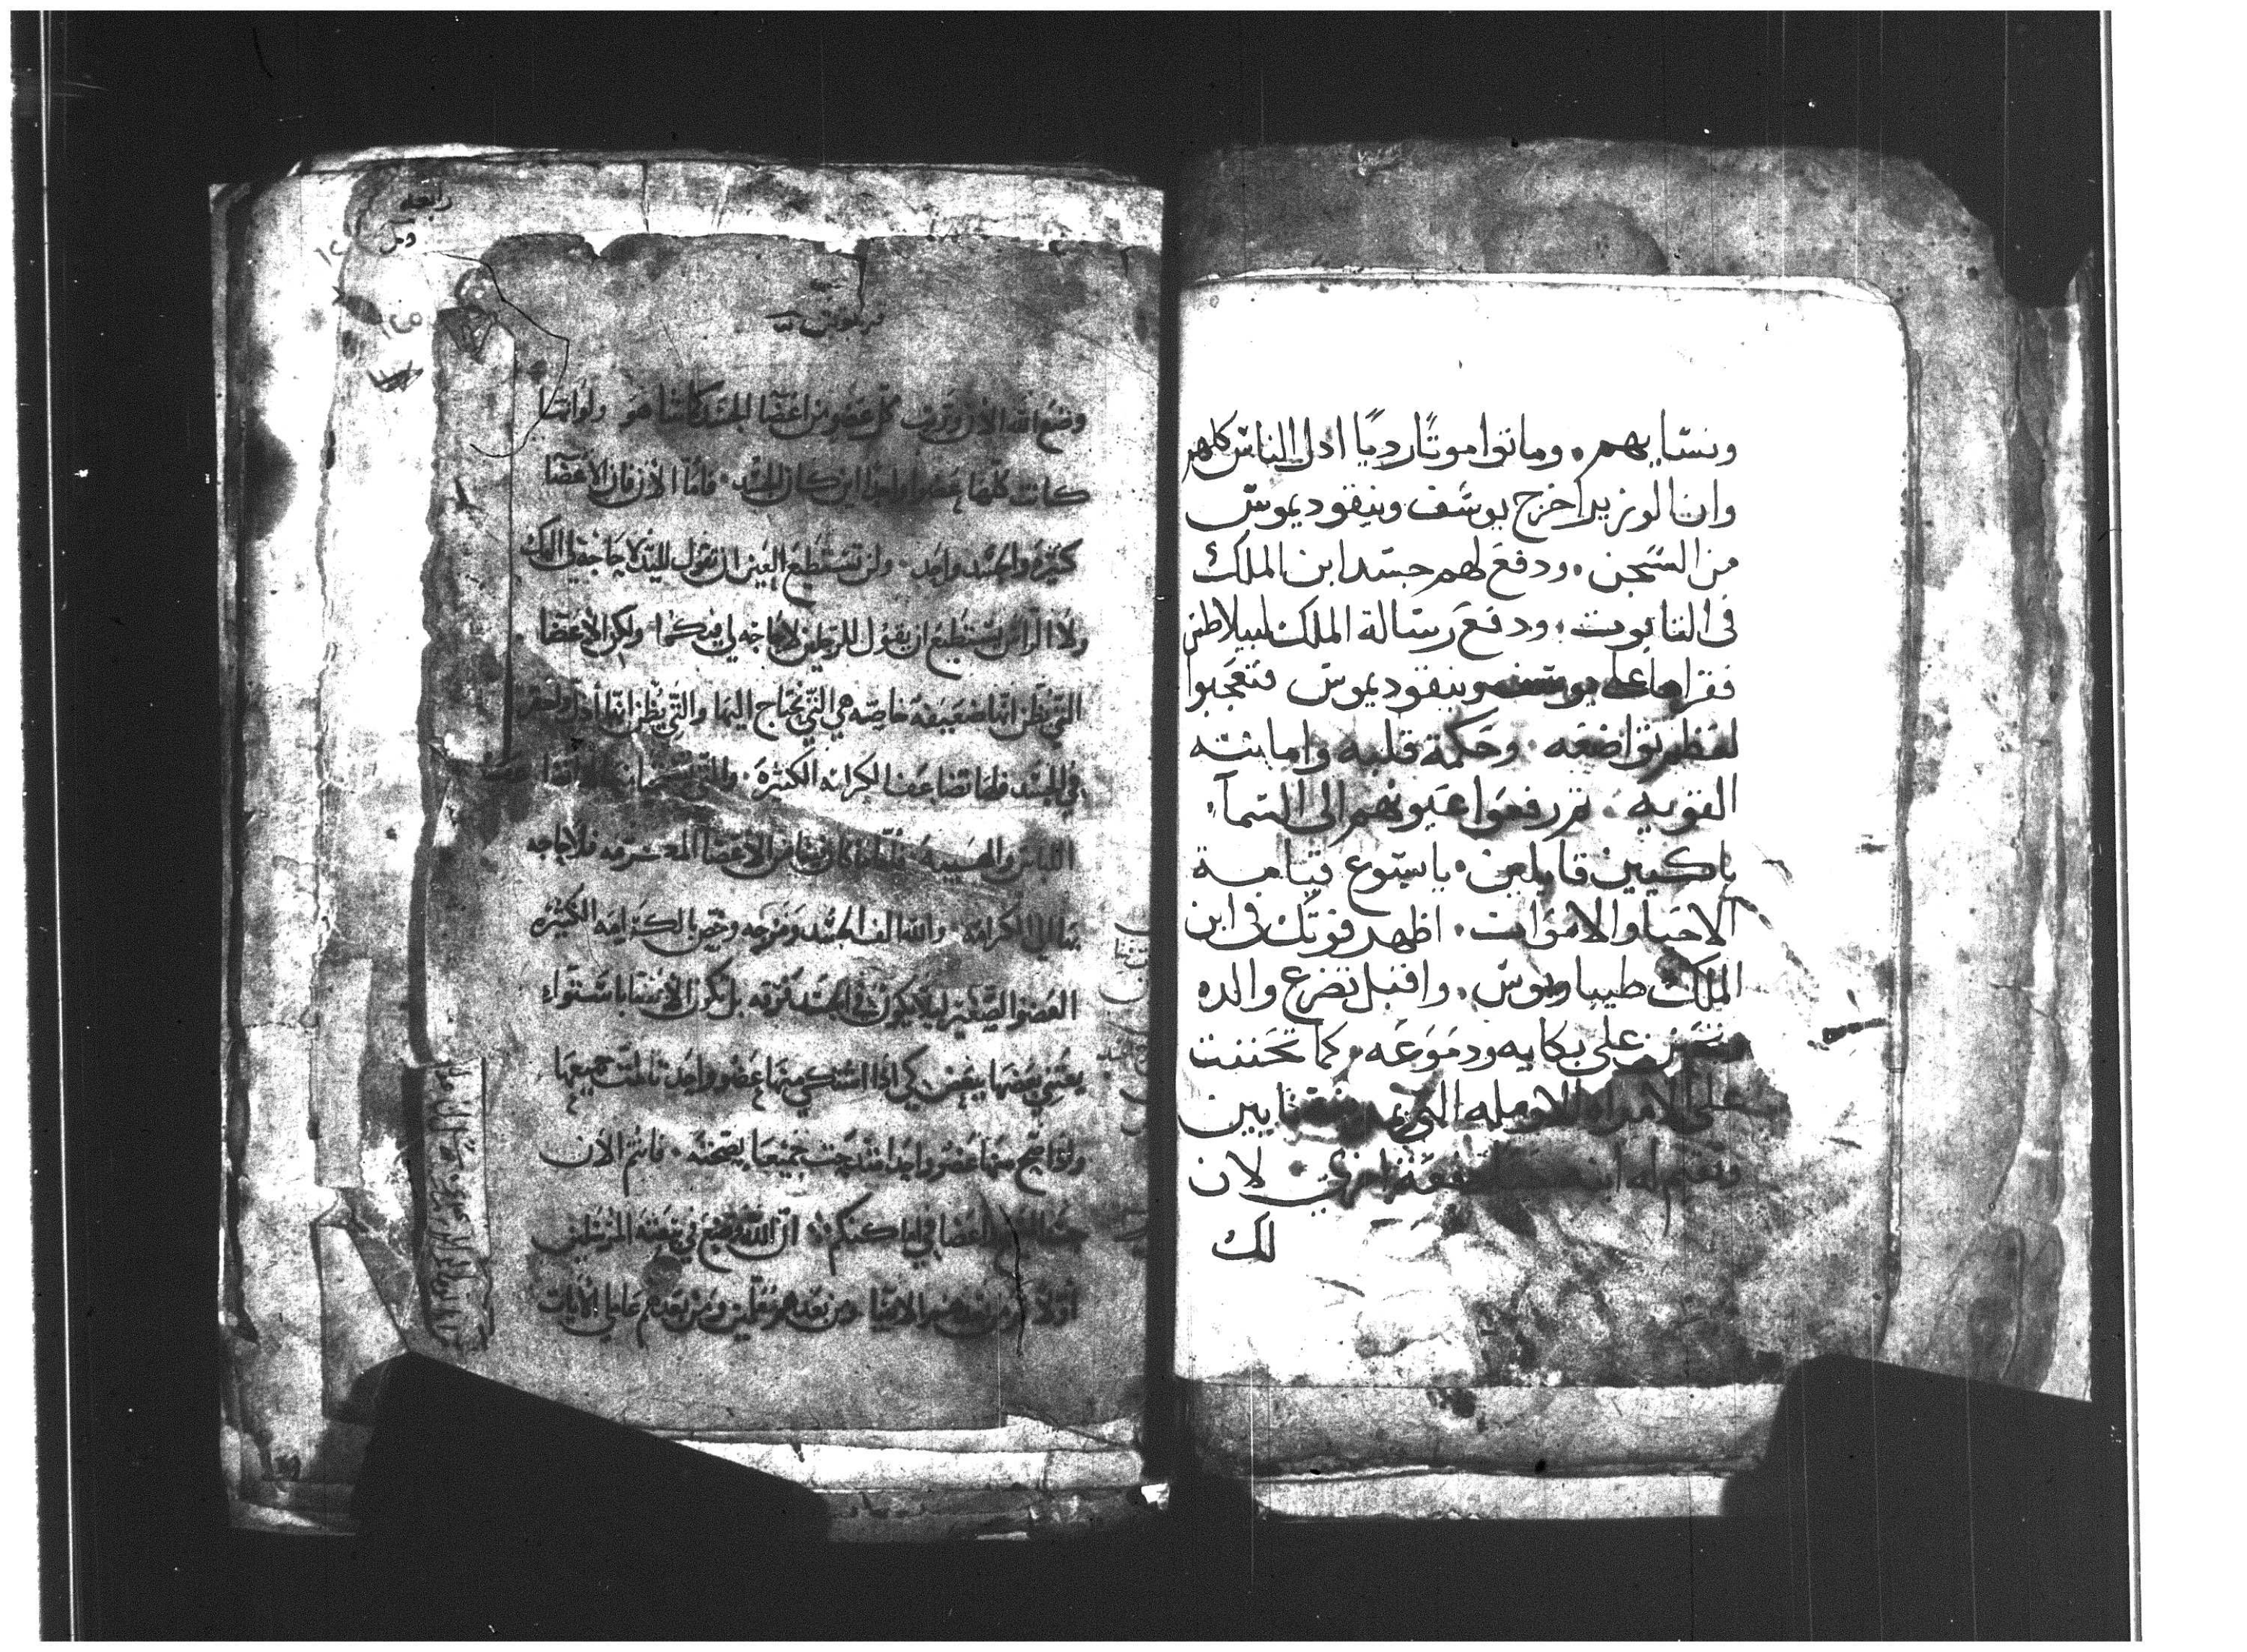 ونسايهم. وماتوا موتًا رديًا اذل الناس كلهم
وان الوزير اخرج يوسف ونيقوديموس
من السجن. ودفع لهم جسد ابن الملك
في التابوت. ودفع رسالة الملك لبيلاطس
فقراها على يوسف ونيقوديموس فتعجبوا
لعظم تواضعه. وحكمة قلبه وامانته
القويه. ثم رفعوا عيونهم الى السماء
باكيين قايلين. يايسوع قيامة
الاحيا والاموات. اظهر قوتك في ابن
الملك طيباريوس. واقبل تضرع والده
على بكايه ودموعه. وكما تحننت
على الامراه الارمله التي
له ابنها دفعة اخرى. لان
لك
رابعه
وضع الله الان وترتيب كل عضو من اعضا الجسد كما شا هو ولو انها
كانت كلها عضوا واحدا اين كان الجسد. فاما الان فان الاعضا
كثيره والجسد واحد. ولن تستطيع العين ان تقول لليد لا حاجة لي اليك
ولا الراس يستطيع ان يقول للرجلين لا حاجه لي فيكما ولكن الاعضا
التي يظن انها ضعيفه خاصه هي التي نحتاج اليها والتي يظن انها اذل واحقر
في الجسد فلها تضاعف الكرامه الكثيرة.
اللباس والهيبة. فاما ما كان منا من الاعضا المعـ شرفه فلا حاجه
بها الى الكرامة. والله الف الجسد ومزجه وخص بالكرامه الكثيره
العضو الصغير ليلا يكون في الجسد فرقه بل تكون الاعضا باستواء
يعتني بعضها ببعض كي اذا اشتكى منها عضو واحد تالمت جميعها
ولو اصح منها عضو واحد امتدحت جميعها بصحته. فانتم الان
جسد المسيح واعضا في اماكنكم. ان الله وضع في بيعته المرسلين
اولا ومن بعدهم الانبيا ومن بعدهم معلمين ومن بعدهم عاملي الايات